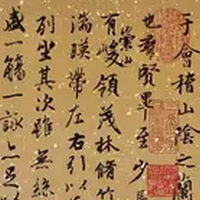 于會稽山陰之蘭
也羣賢畢至少
有崇山峻領茂林脩竹
湍暎帶左右引以
列坐其次雖無絲
盛一觴一詠亦足